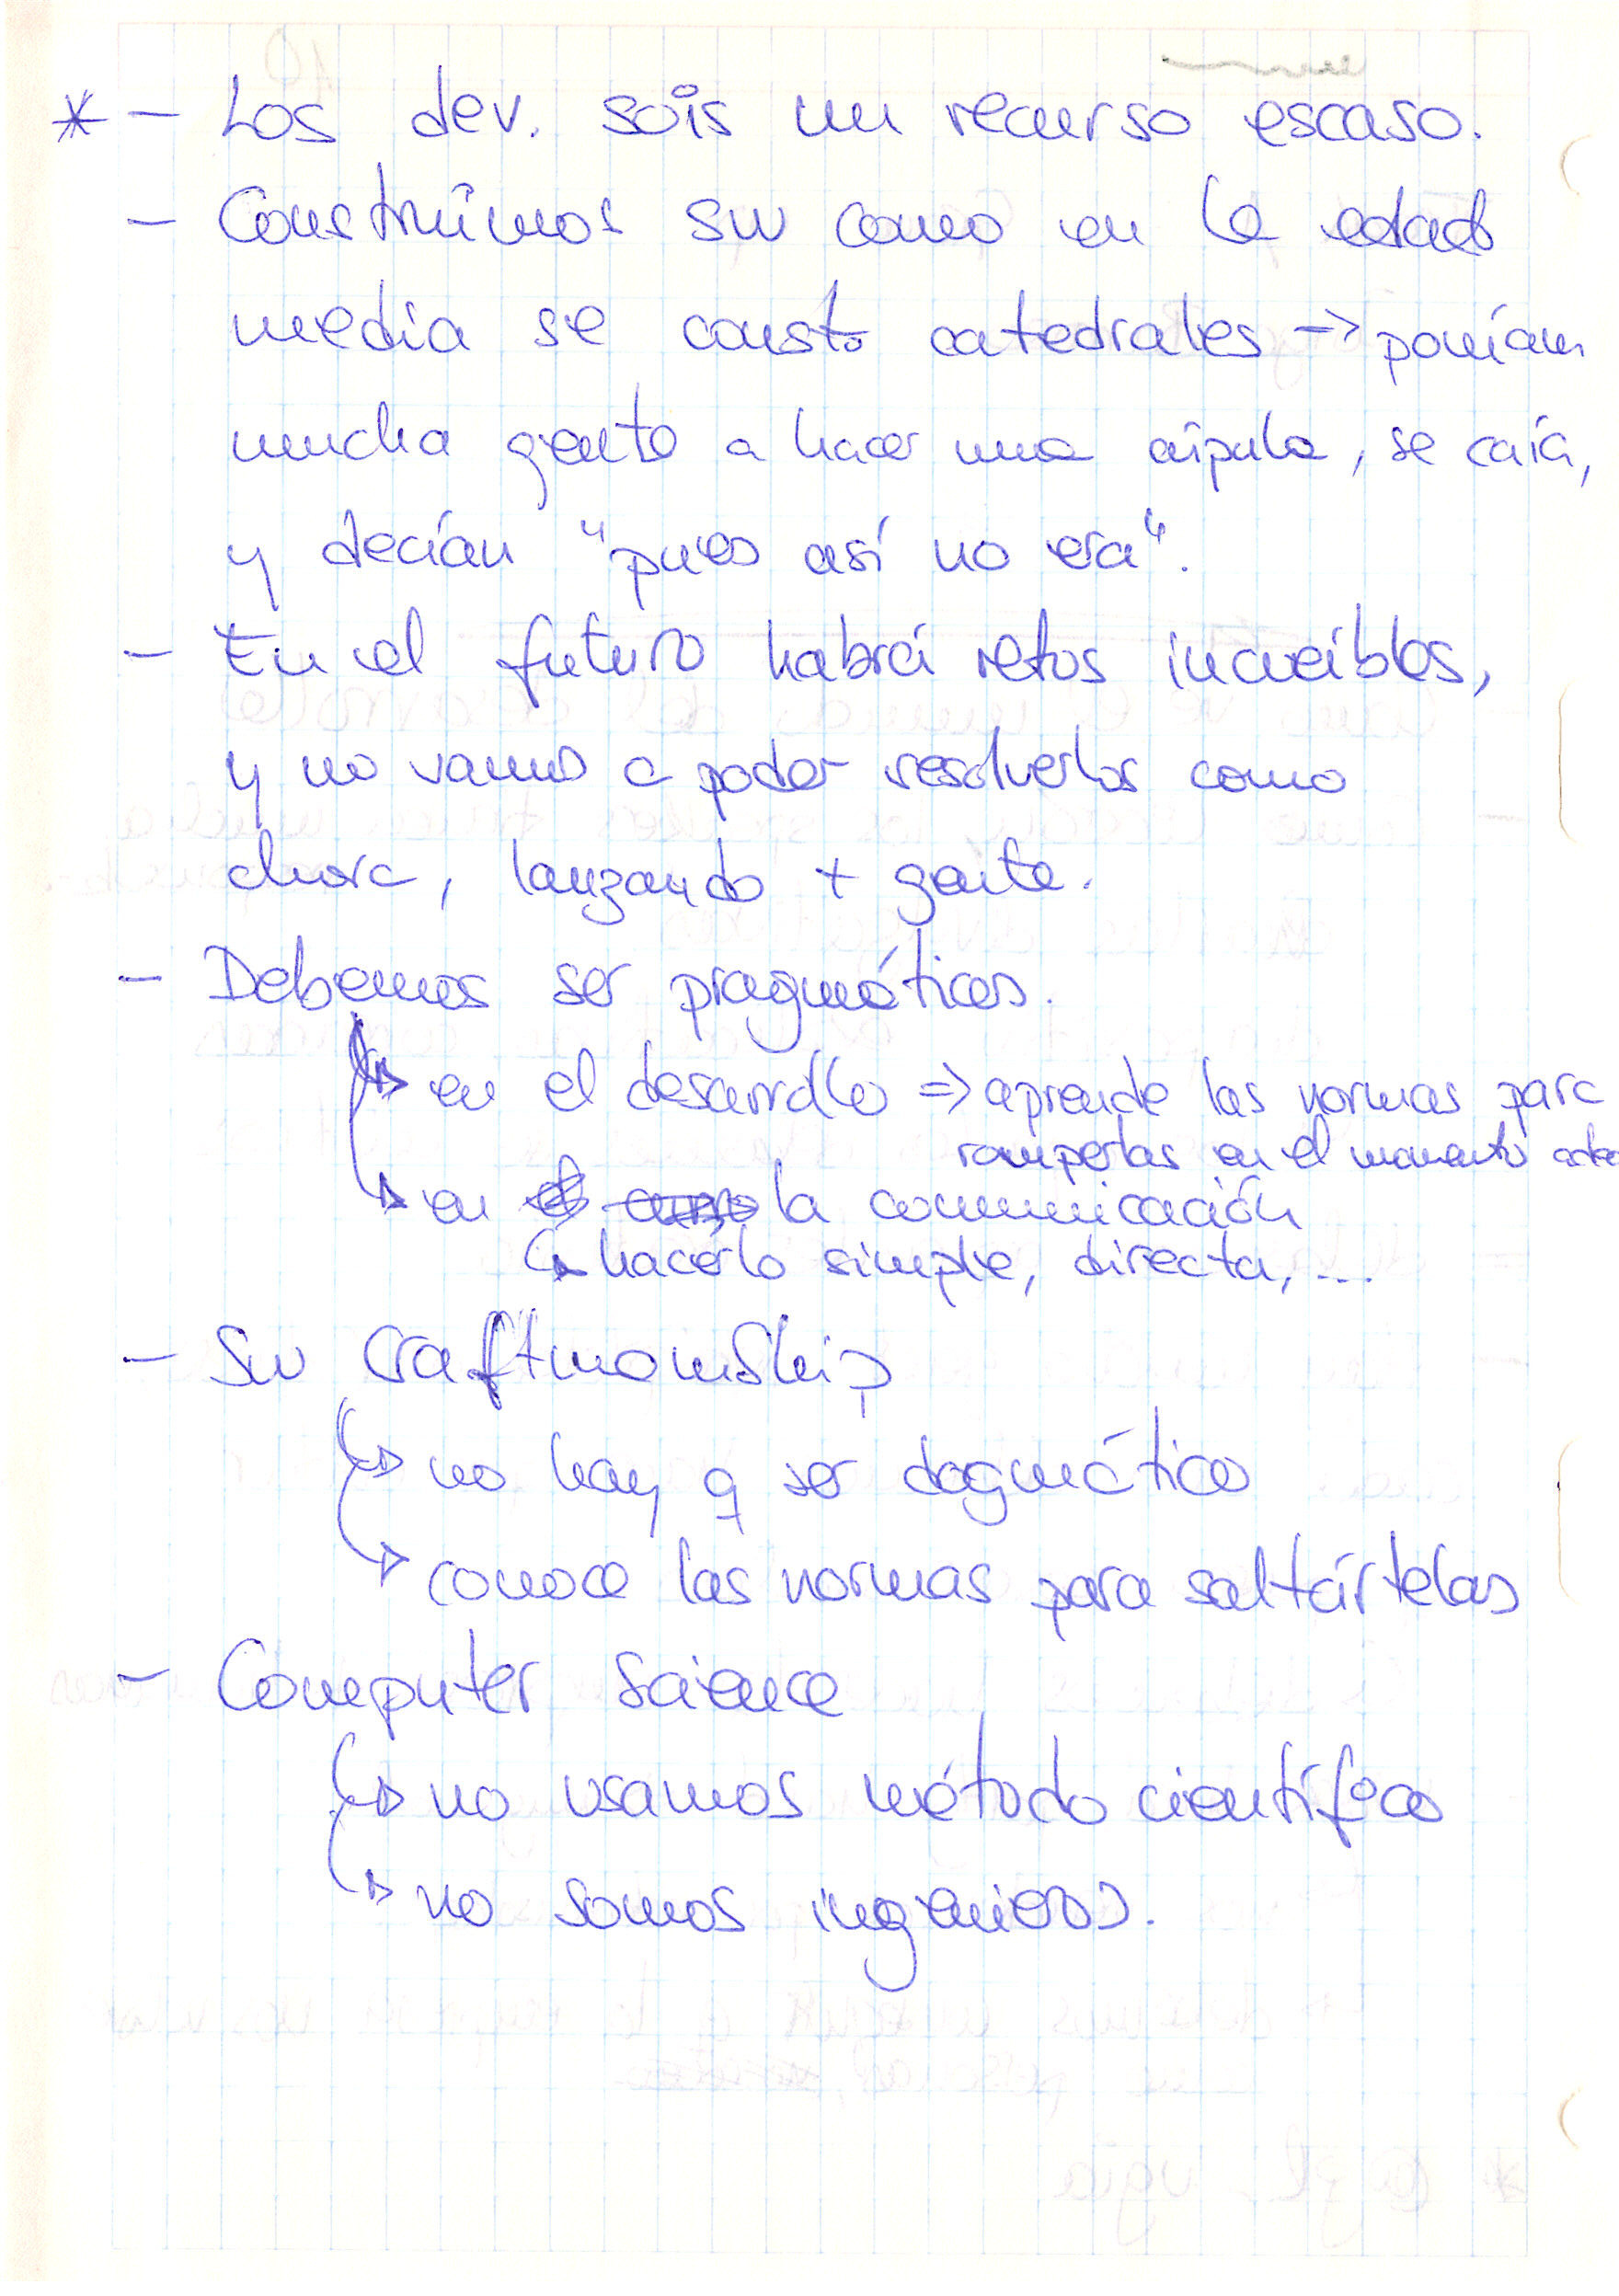 * - Los dev. sois un recurso escaso.
- Construimos SW como en la edad
media se const. catedrales → ponían
mucha gente a hacer una cúpula, se caía,
y decían "pues así no era".
- En el futuro habrá retos increíbles,
y no vamos a poder resolverlos como
ahora, lanzando + gente.
- Debemos ser pragmáticos.
↳ en el desarrollo ⇒ aprende las normas para
romperlas en el momento
↳ en la comunicación
↳ hacerlo simple, directa, ...
- SW Craftmanship
↳ no hay q ser dogmático
↳ conoce las normas para saltártelas
- Computer Science
↳ no usamos método científico
↳ no somos ingenieros.